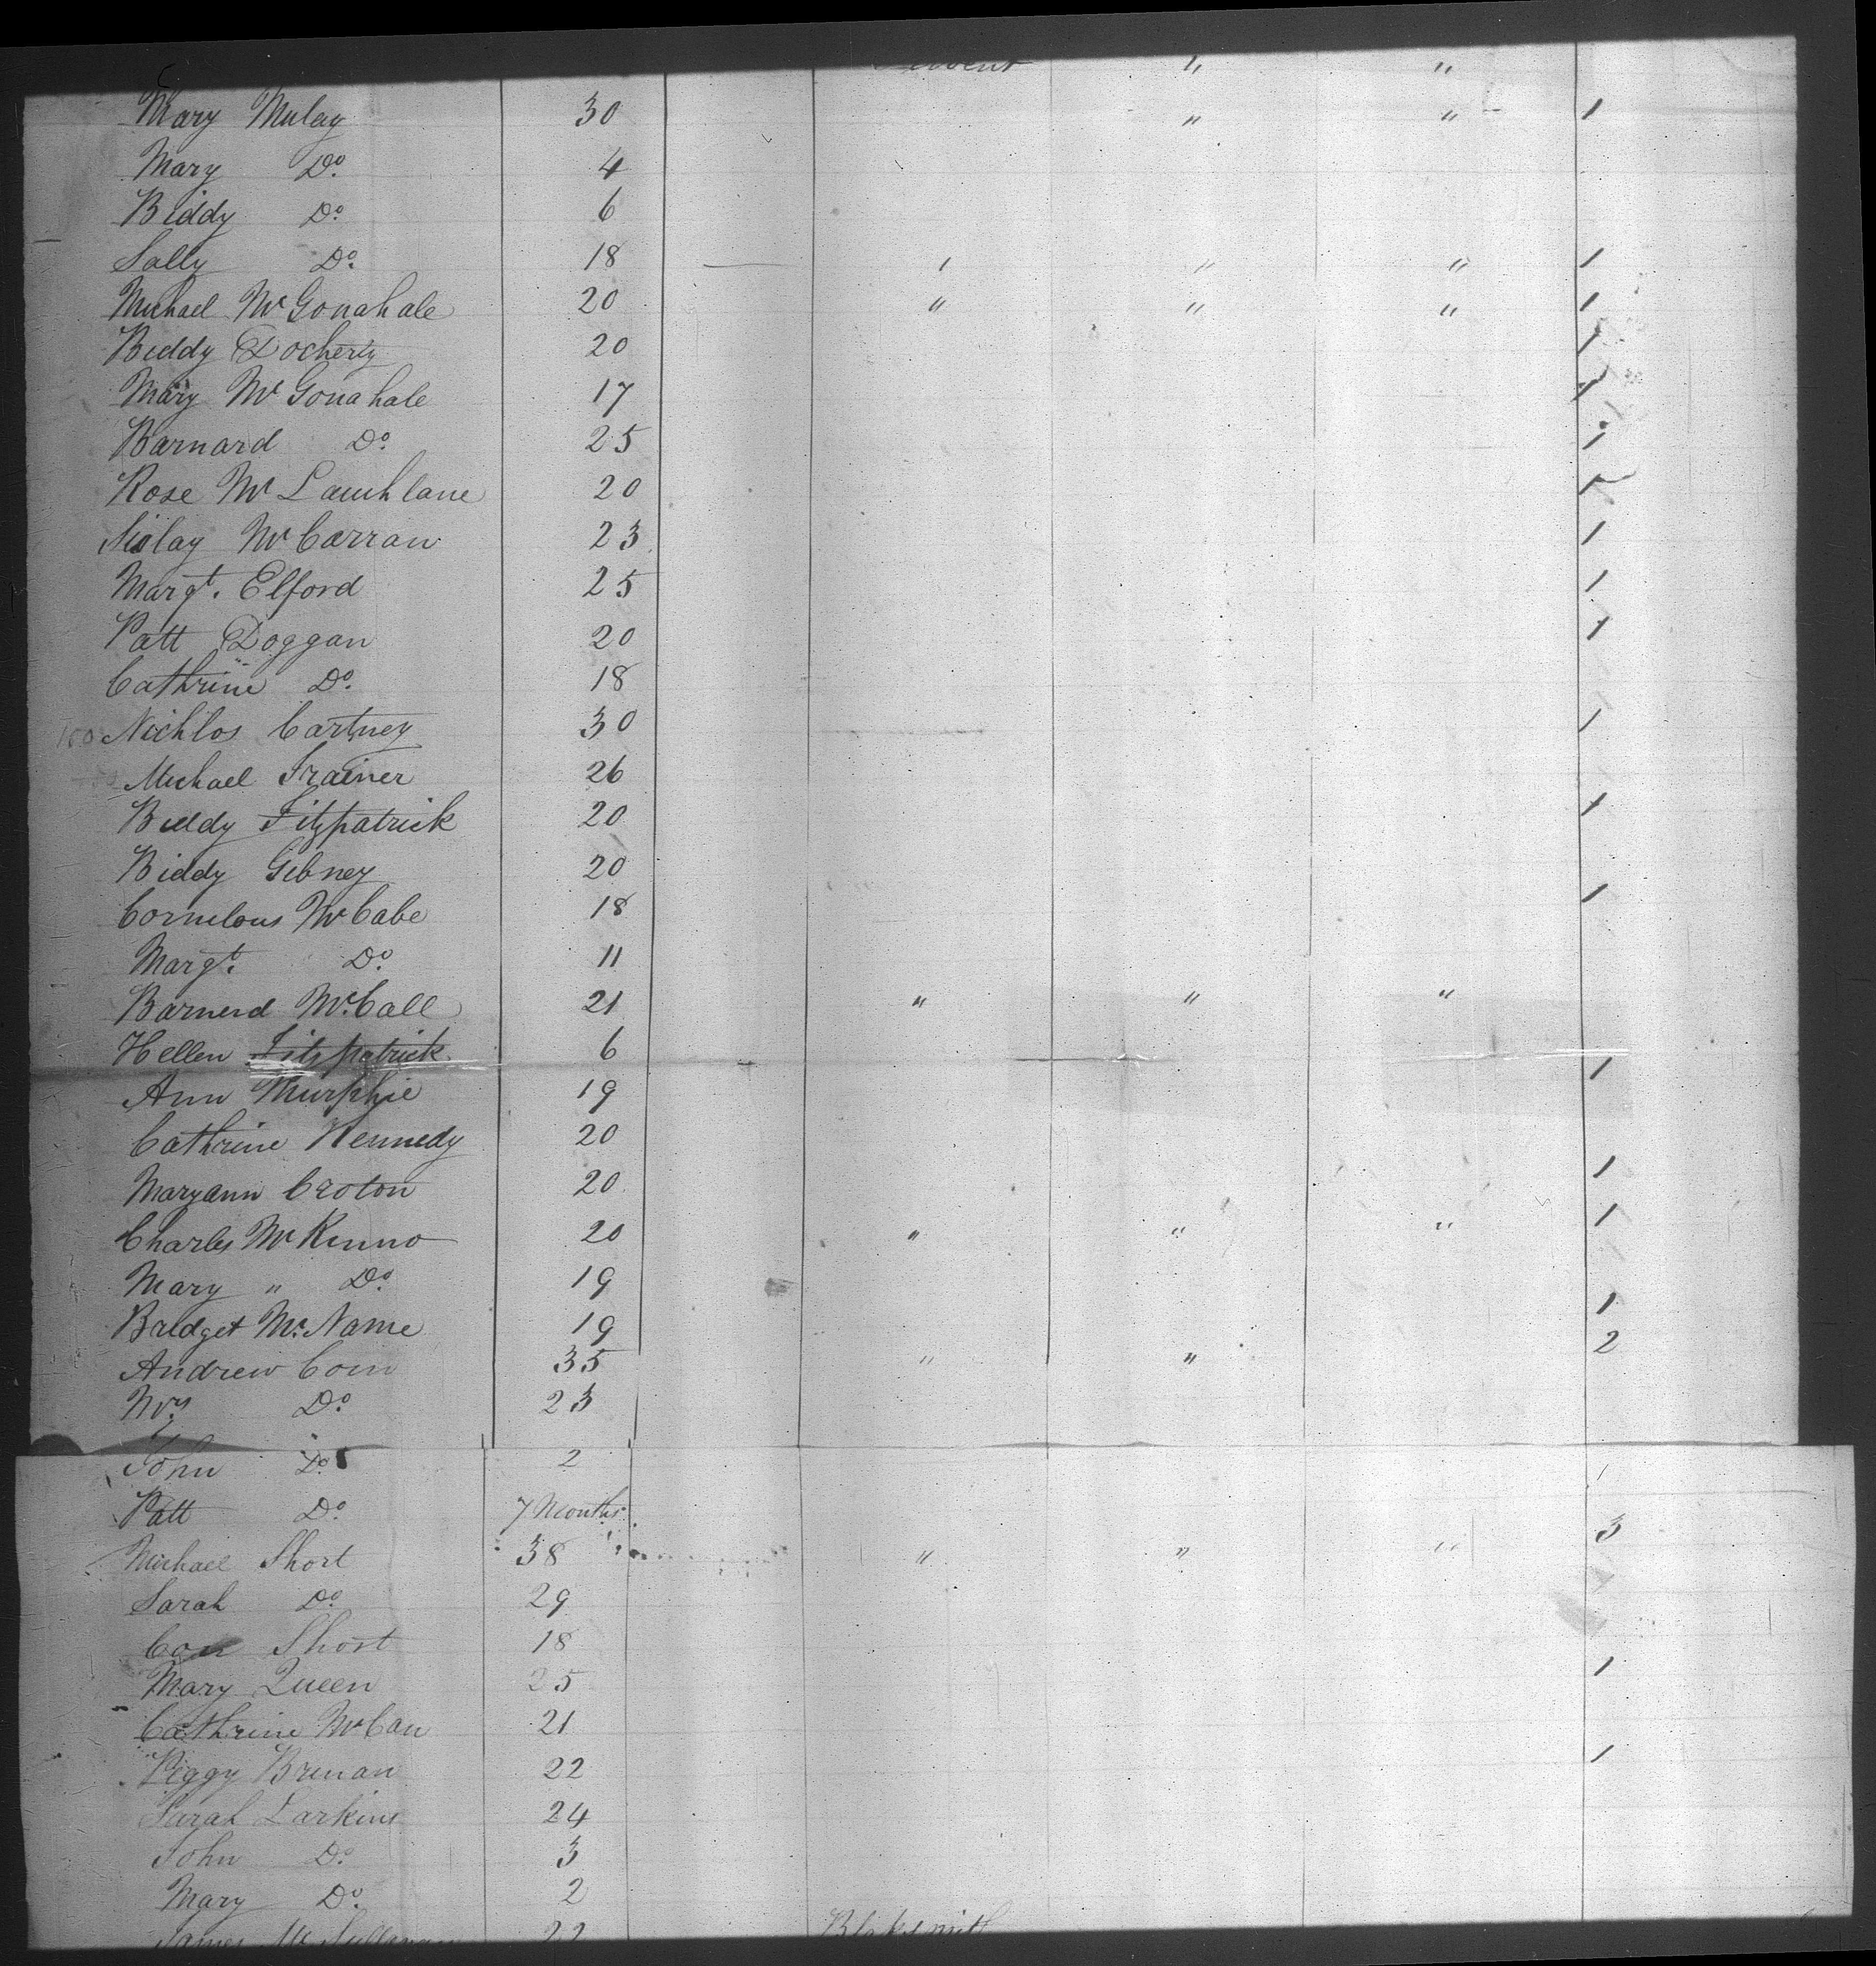 " "
Mary Mulay 30 " " 1
Mary Do. 4
Biddy Do. 6
Sally Do. 18 " " " 1
Michael McGonahale 20 " " " 1
Biddy Docherty 20 1
Mary McGonahale 17 1
Barnard Do. 25 1
Rose McLauchlane 20 1
McCarran 23 1
Margt. Elford 25 1
Patt Doggan 20 1
Cathrine Do. 18
Nichlos Cartney 30 1
Michael Trainer 26
Biddy Fitzpatrick 20 1
Biddy Gibney 20
Cornelous McCabe 18 1
Margt. Do. 11
Barnerd McCall 21 " " "
Hellen Fitzpatrick 6
Ann Murphie 19 1
Cathrine Kennedy 20
Maryann Croton 20 1
Charles McKinno 20 " " " 1
Mary " Do. 19
Bridget McName 19 1
Andrew Coin 35 " " 2
Mrs. Do. 23
John Do. 2
Patt Do. 7 Months
Michael Short 38 " " " 3
Sarah Do. 29
Short 18
Mary Queen 25 1
Cathrine McCan 21
Peggy Brenan 22 1
Sarah Larkins 24
John Do. 3
Mary Do. 2
James 22 Blaksmith